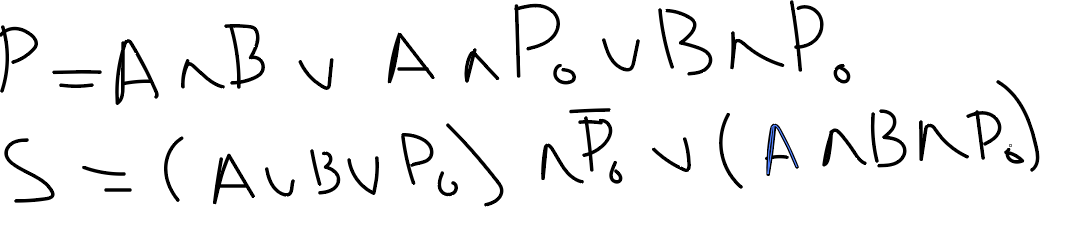 P = A ∧ B ∨ A ∧ P₀ ∨ B ∧ P₀
S = (A ∨ B ∨ P₀) ∧ P̅₀ ∨ (A ∧ B ∧ P₀)